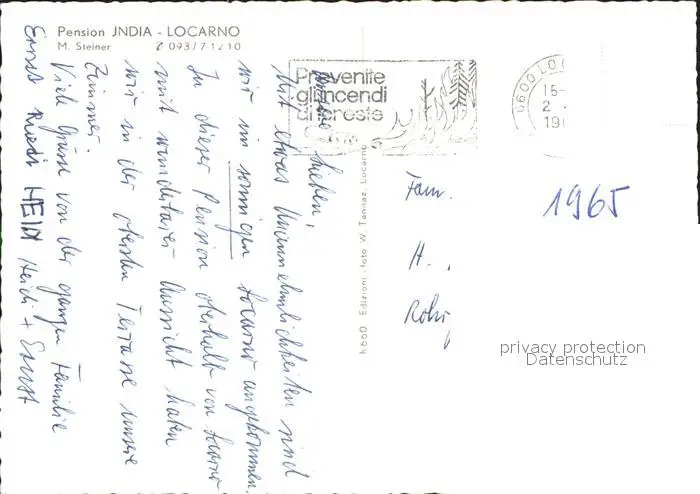 Pension JNDIA - LOCARNO
M. Steiner 093/7 12 10
Prevenite
gli incendi
di foreste
6600 LOC
15-
2.
19
lieben,
Mit etwas Unannehmlichkeiten sind
wir im sonnigen Locarno angekommen.
In dieser Pension oberhalb von Locarno
mit wunderbarer Aussicht haben
wir in der obersten Terrasse unsere
Zimmer.
Viele Grüsse von der ganzen Familie
Ernst Ruedi HEIDI Heidi + Ernst
6660 Edizioni - foto W. Tannaz, Locarno
Fam.
H.
Rohr
1965
privacy protection
Datenschutz